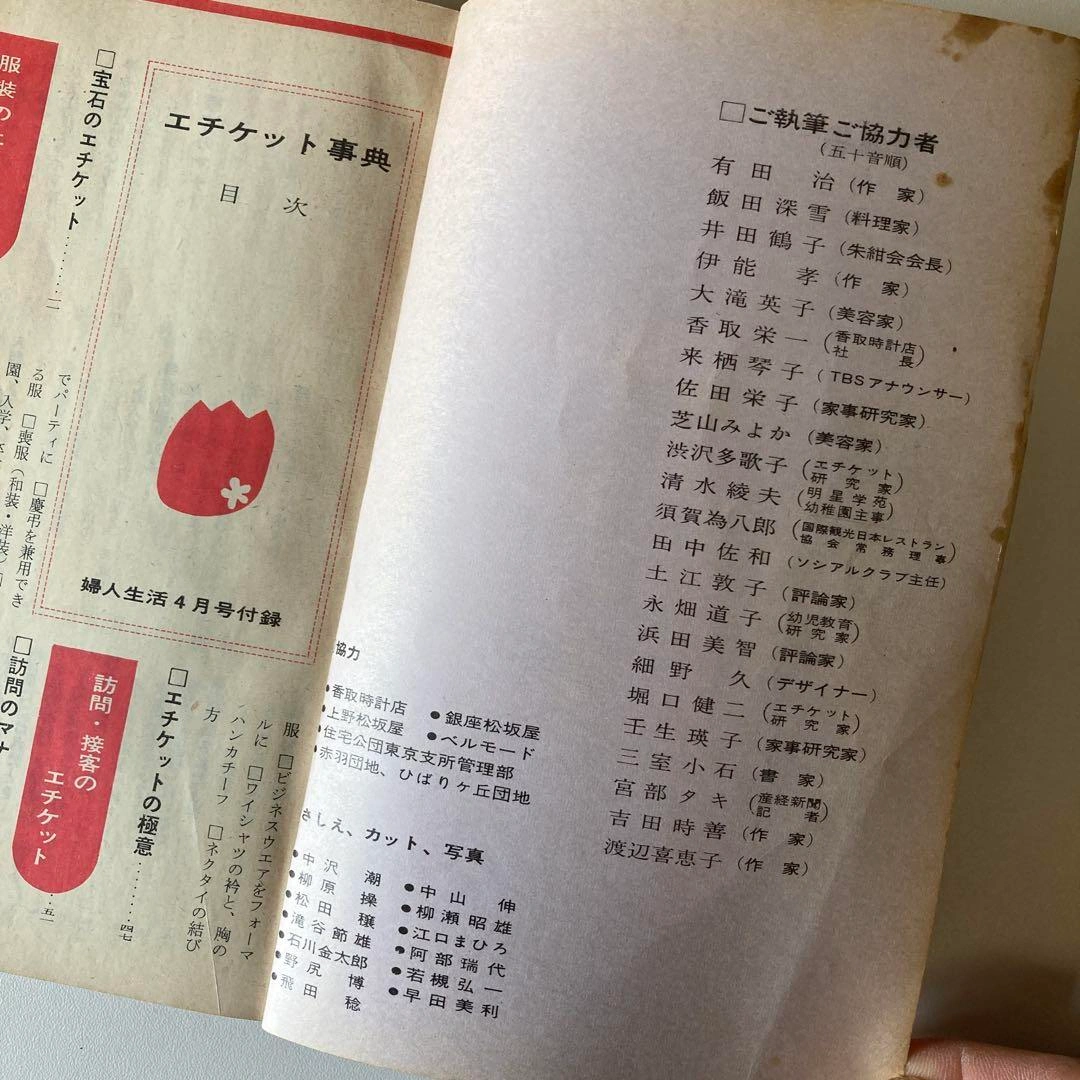 □ご執筆ご協力者
(五十音順)
有田 治(作 家)
飯田深雪(料理家)
井田鶴子(朱紺会会長)
伊能 孝(作 家)
大滝英子(美容家)
香取栄一(香取時計店社長)
来栖琴子(TBSアナウンサー)
佐田栄子(家事研究家)
芝山みよか(美容家)
渋沢多歌子(エチケット研究家)
清水綾夫(明星学苑幼稚園主事)
須賀為八郎(国際観光日本レストラン協会常務理事)
田中佐和(ソシアルクラブ主任)
土江敦子(評論家)
永畑道子(幼児教育研究家)
浜田美智(評論家)
細野 久(デザイナー)
堀口健二(エチケット研究家)
壬生瑛子(家事研究家)
三室小石(書 家)
宮部タキ(産経新聞記者)
吉田時善(作 家)
渡辺喜恵子(作 家)
協力
●香取時計店 ●銀座松坂屋
●上野松坂屋 ●ベルモード
●住宅公団東京支所管理部
●赤羽団地、ひばりヶ丘団地
さしえ、カット、写真
●中沢 潮 ●中山 伸
●柳原 操 ●柳瀬昭雄
●松田 穣 ●江口まひろ
●滝谷節雄 ●阿部瑞代
●石川金太郎 ●若槻弘一
●野尻 博 ●早田美利
●飛田 稔
エチケット事典
目次
婦人生活4月号付録
服装の
□宝石のエチケット……二
でパーティに □慶弔を兼用でき
る服 □喪服(和装・洋装)
園、入学、
□エチケットの極意……四七
服 □ビジネスウエアをフォーマ
ルに □ワイシャツの衿と、胸の
ハンカチーフ □ネクタイの結び
方
訪問・接客の
エチケット…五一
□訪問のマナ